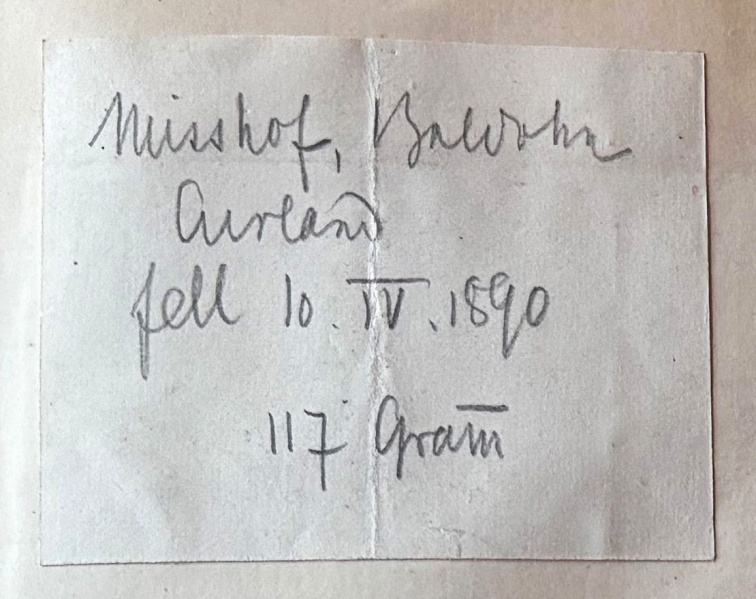 Misshof, Baldohn
Curland
fell 10. IV. 1890
117 Gram̅